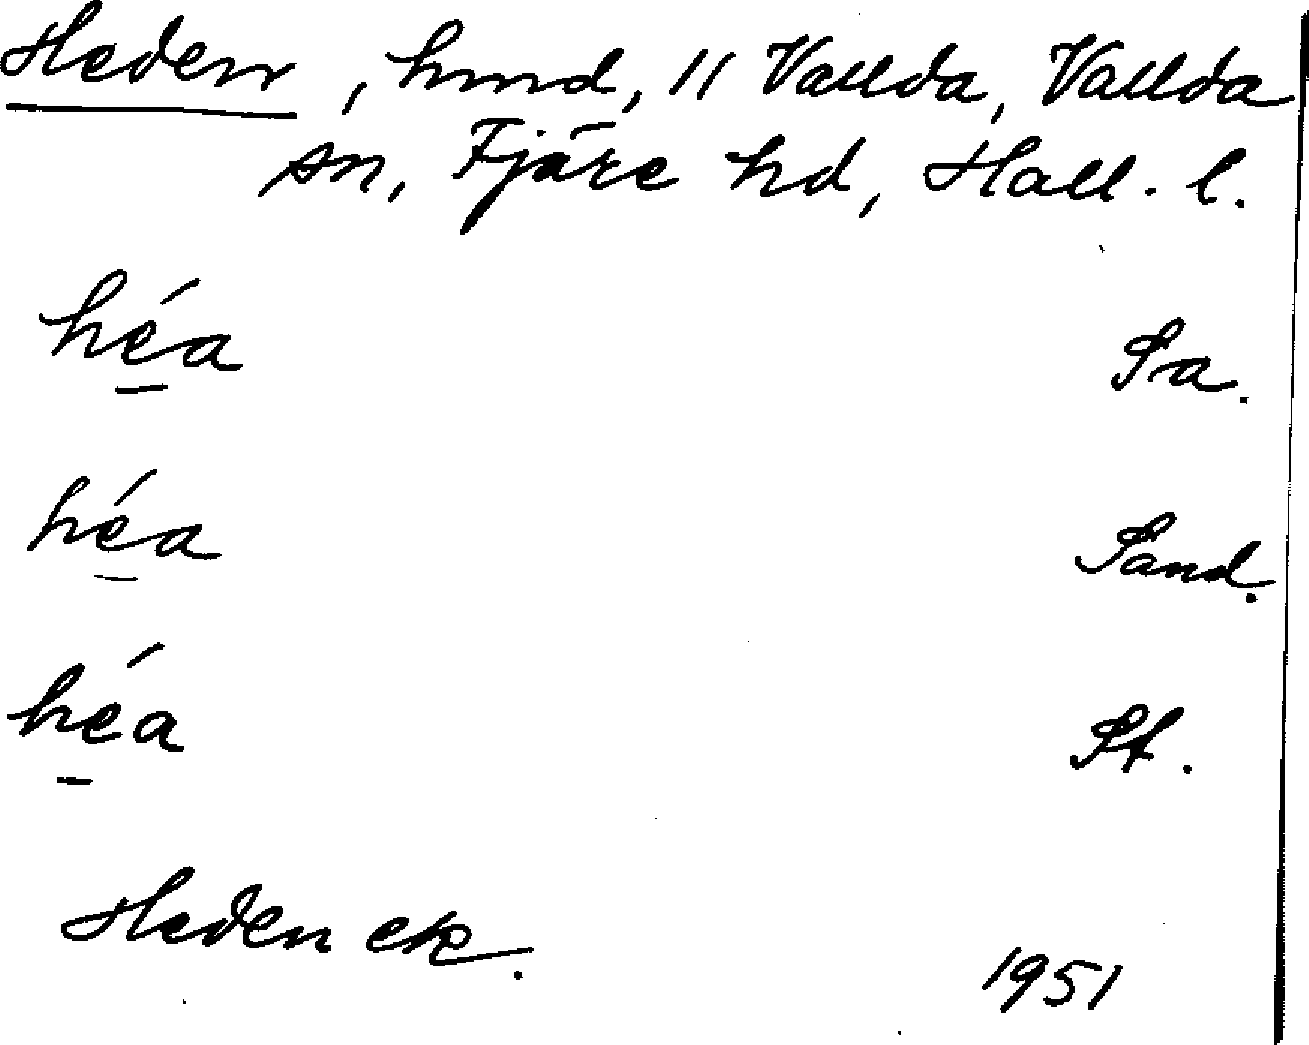 Heden, hmd, 11 Vallda, Vallda
sn, Fjäre hd, Hall. l.
héa Sa.
héa Sand.
héa St.
Heden ek.
1951